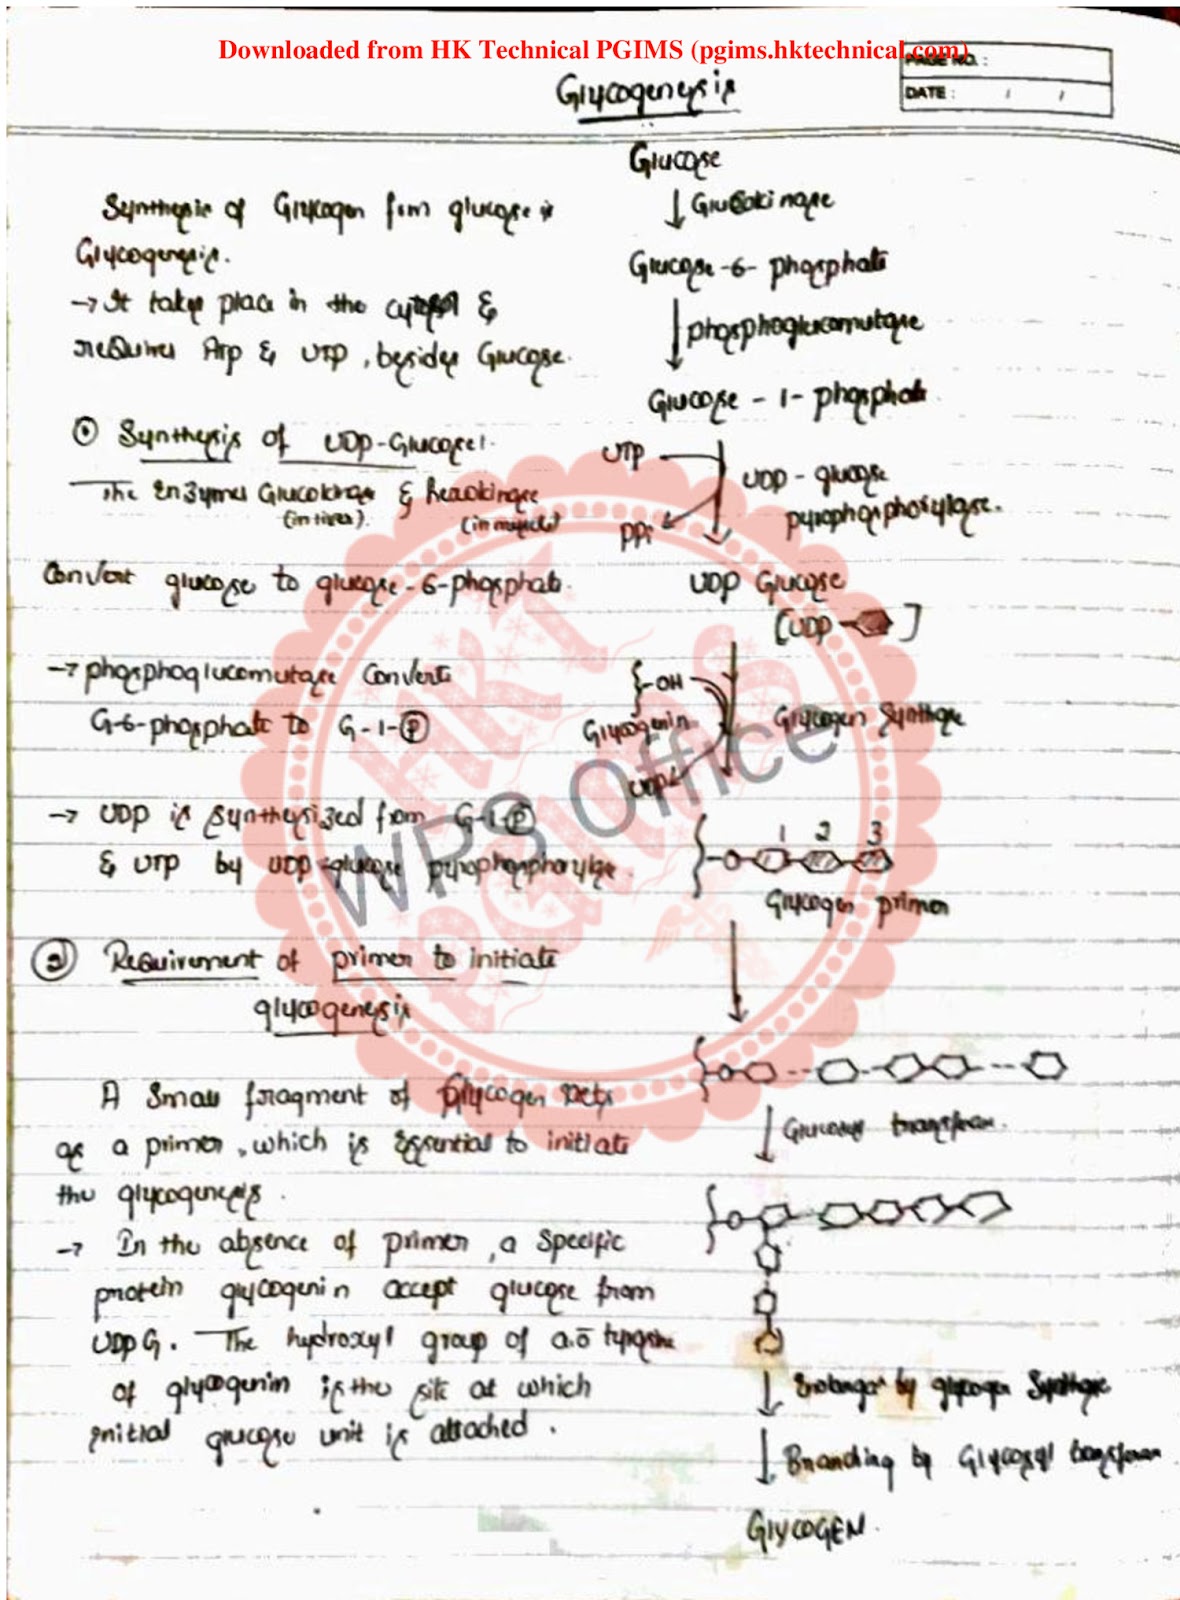 Downloaded from HK Technical PGIMS (pgims.hktechnical.com)
PAGE NO. :
DATE : / /
Glycogenesis
Synthesis of Glycogen from glucose is
Glycogenesis.
→ It takes place in the cytosol &
requires ATP & UTP, besides Glucose.
① Synthesis of UDP-Glucose!
The Enzymes Glucokinase & hexokinase
(in liver). (in muscle)
Convert glucose to glucose-6-phosphate.
→ phosphoglucomutase Converts
G-6-phosphate to G-1-Ⓟ
→ UDP is synthesized from G-1-Ⓟ
& UTP by UDP-glucose pyrophosphorylase.
② Requirement of primer to initiate
glycogenesis
A Small fragment of Glycogen acts
as a primer, which is Essential to initiate
the glycogenesis.
→ In the absence of primer, a Specific
protein glycogenin accept glucose from
UDPG. The hydroxyl group of a.ō tyrosine
of glycogenin is the site at which
initial glucose unit is attached.
Glucose
↓ Glucokinase
Glucose-6-phosphate
↓ phosphoglucomutase
Glucose-1-phosphate
UTP
UDP-glucose
pyrophosphorylase.
PPi
UDP Glucose
[UDP- ]
{-OH
Glycogenin
Glycogen Synthase
UDP
1 2 3
Glycogen primer
↓ Glucosyl transferase.
↓ by glycogen Synthase
↓ Branching by Glycosyl transferase
GLYCOGEN.
HKT
PGIMS
WPS Office